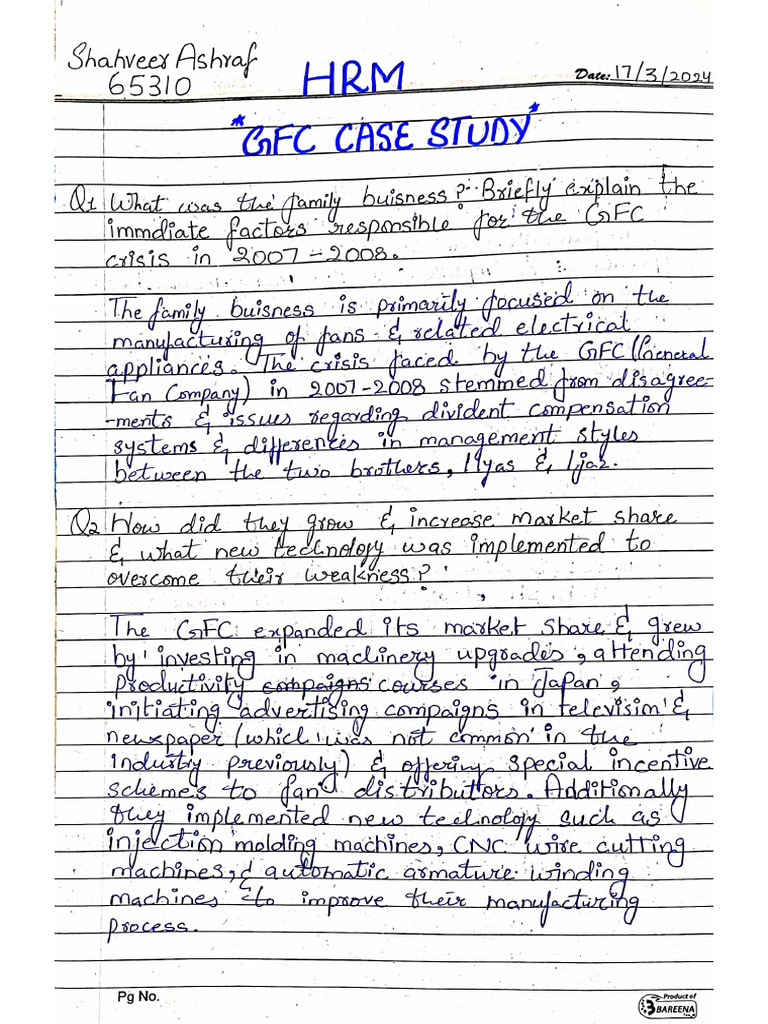 Shahveer Ashraf
65310
HRM
Date: 17/3/2024
*GFC CASE STUDY*
Q1 What was the family buisness? Briefly explain the
immdiate factors responsible for the GFC
crisis in 2007-2008.
The family buisness is primarily focused on the
manufacturing of fans & related electrical
appliances. The crisis faced by the GFC (General
Fan Company) in 2007-2008 stemmed from disagree-
-ments & issues regarding divident compensation
systems & differences in management styles
between the two brothers, Ilyas & Ijaz.
Q2 How did they grow & increase market share
& what new technology was implemented to
overcome their weakness?
The GFC expanded its market share & grew
by investing in machinery upgrades, attending
productivity compaigns courses in Japan,
initiating advertising compaigns in television &
newspaper (which was not common in the
industry previously) & offering special incentive
scheme's to fan distributors. Additionally
they implemented new technology such as
injection molding machines, CNC wire cutting
machines, & automatic armature winding
machines to improve their manufacturing
process.
Pg No.
Product of
BAREENA